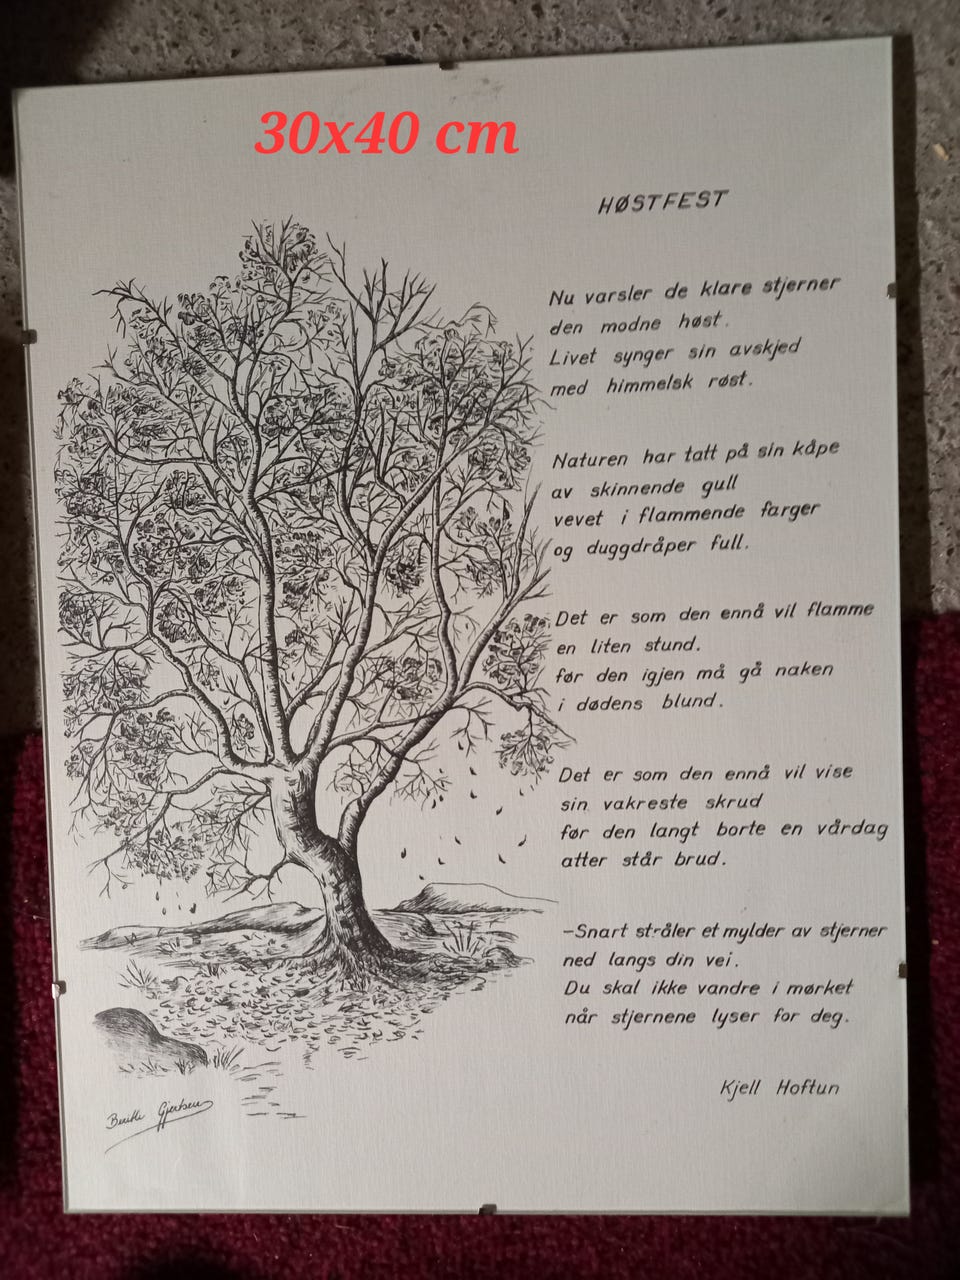 30x40 cm
HØSTFEST
Nu varsler de klare stjerner
den modne høst.
Livet synger sin avskjed
med himmelsk røst.
Naturen har tatt på sin kåpe
av skinnende gull
vevet i flammende farger
og duggdråper full.
Det er som den ennå vil flamme
en liten stund.
før den igjen må gå naken
i dødens blund.
Det er som den ennå vil vise
sin vakreste skrud
før den langt borte en vårdag
atter står brud.
-Snart stråler et mylder av stjerner
ned langs din vei.
Du skal ikke vandre i mørket
når stjernene lyser for deg.
Kjell Hoftun
Gjertsen